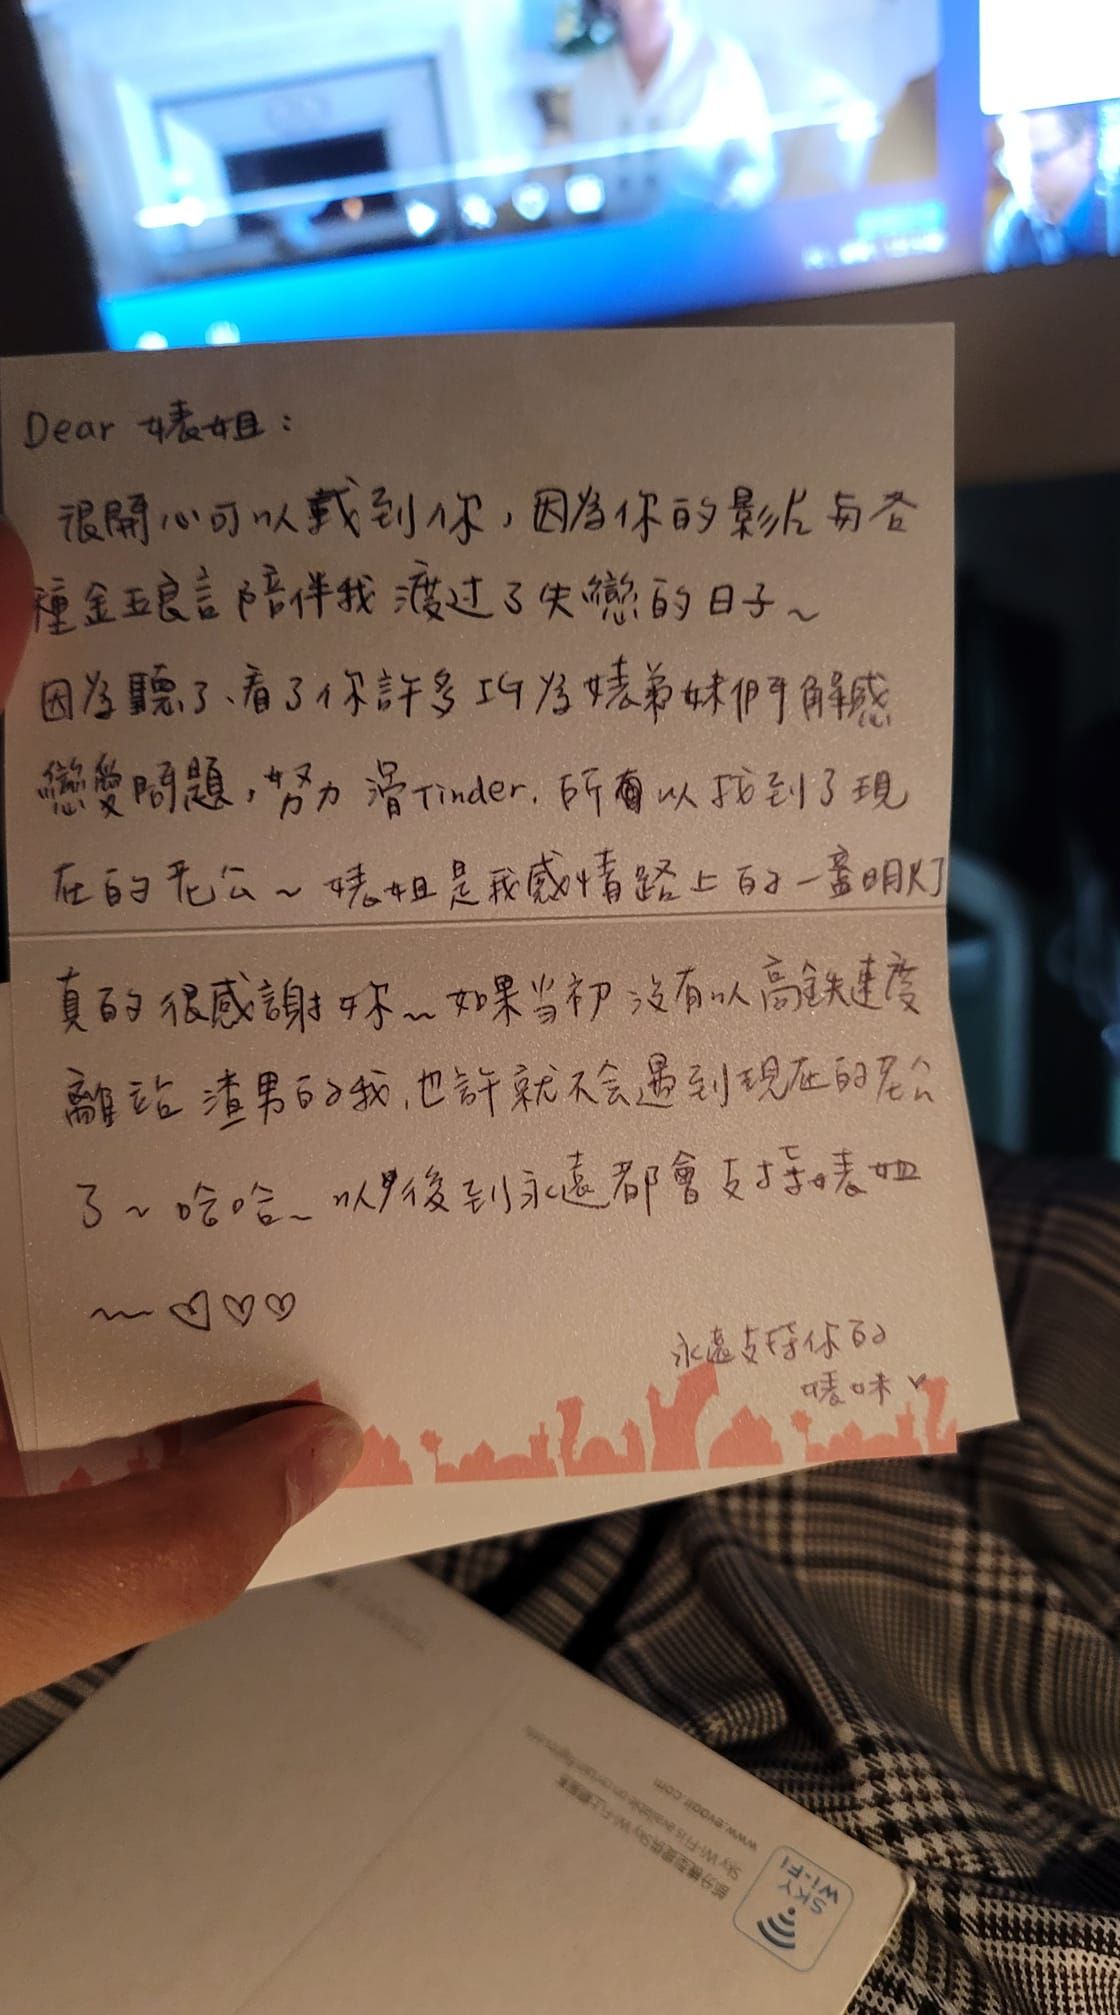 Dear 婊姐：
很開心可以載到你，因為你的影片与各
種金玉良言陪伴我渡过了失戀的日子～
因為聽了、看了你許多 IG 為婊弟妹們解惑
戀愛問題，努力滑Tinder. 所有以找到了現
在的老公～婊姐是我感情路上的一盞明灯
真的很感謝妳～如果当初沒有以高鉄速度
離站渣男的我，也許就不会遇到現在的老公
了～哈哈～以後到永遠都會支持婊姐
～♡♡♡
永遠支持你的
婊妹♥
SKY
Wi-Fi
部分機型提供Sky Wi-Fi上網服務
Sky Wi-Fi is available on certain flights.
www.evaair.com